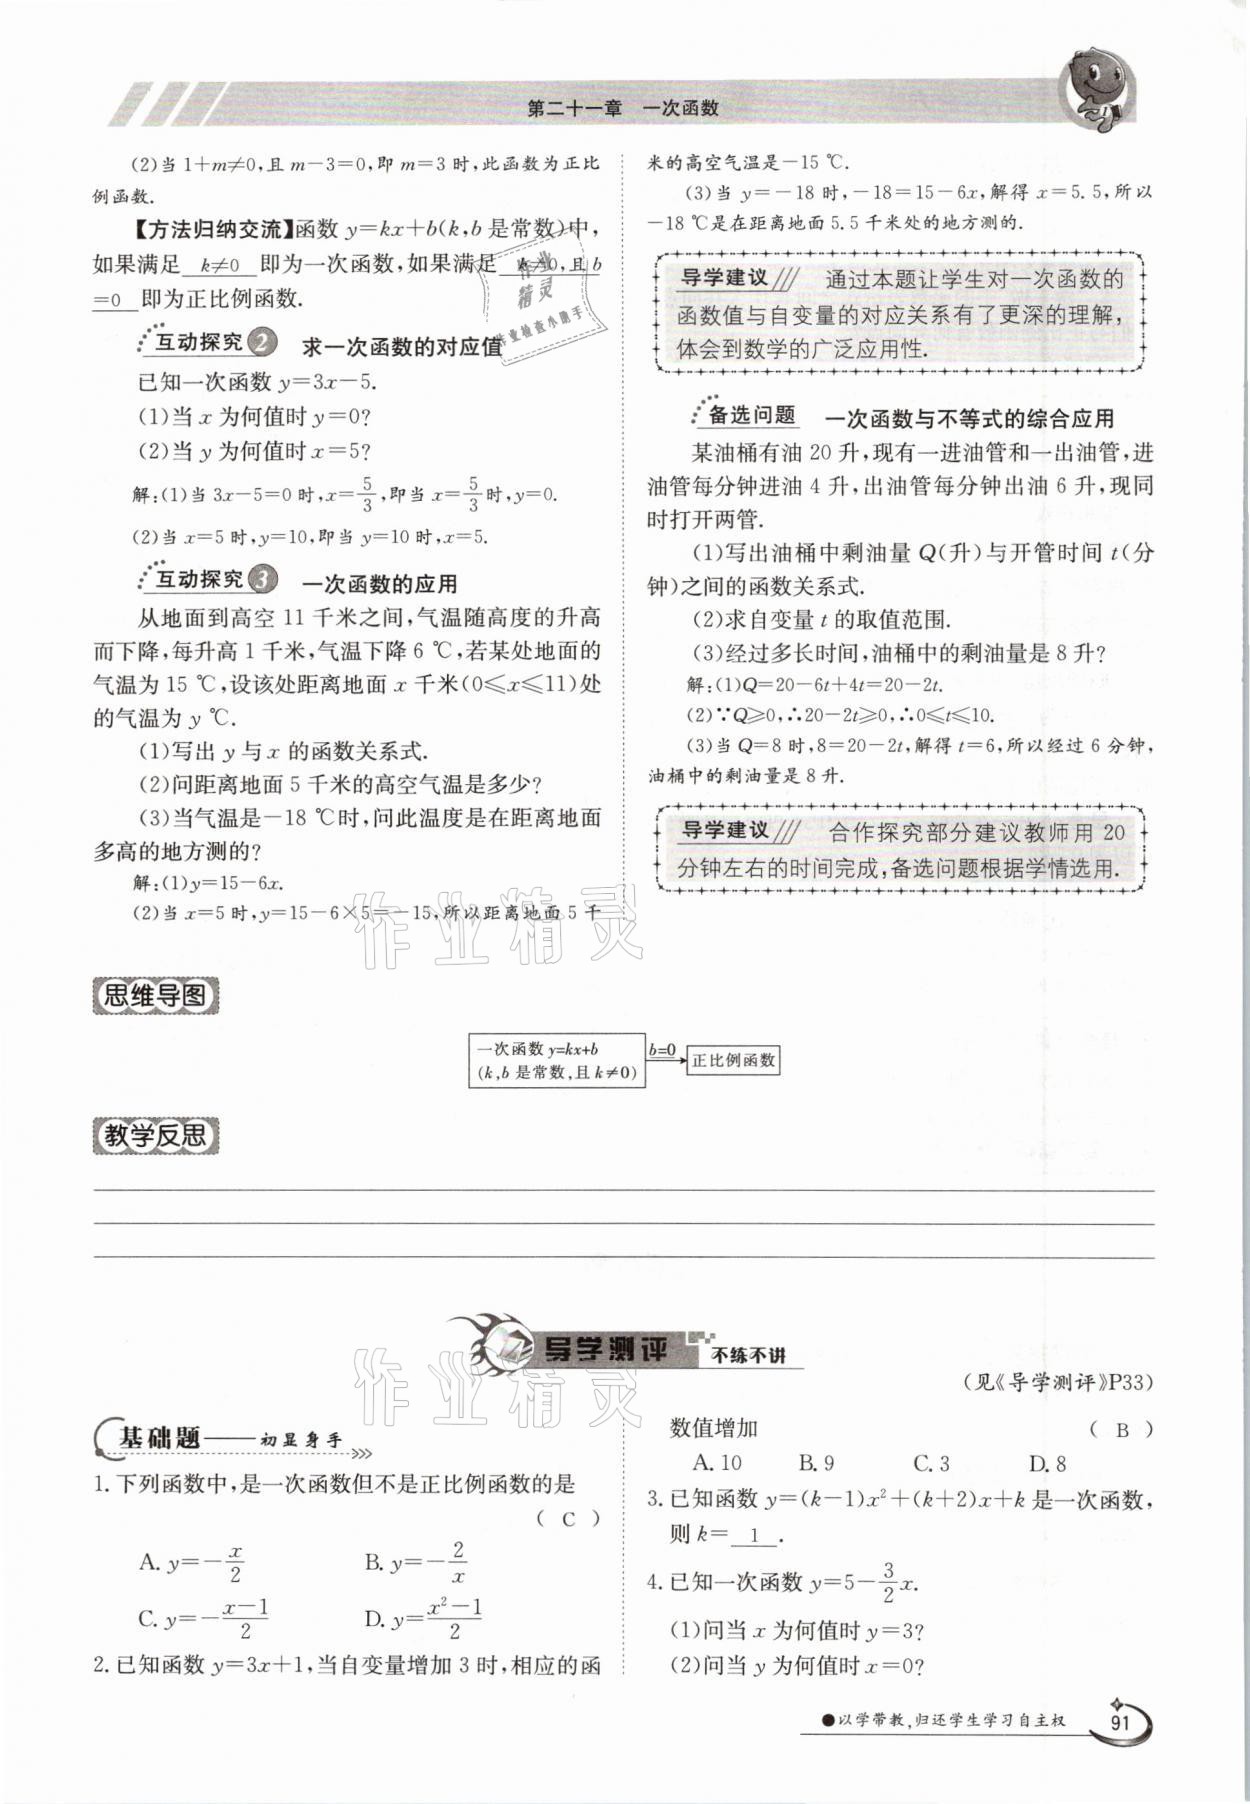 第二十一章　一次函数
(2)当 1+m≠0,且 m-3=0,即 m=3 时,此函数为正比
例函数.
【方法归纳交流】函数 y=kx+b(k,b 是常数)中,
如果满足 k≠0 即为一次函数,如果满足 k≠0,且 b
=0 即为正比例函数.
互动探究 2　求一次函数的对应值
已知一次函数 y=3x-5.
(1)当 x 为何值时 y=0?
(2)当 y 为何值时 x=5?
解:(1)当 3x-5=0 时,x=5/3,即当 x=5/3时,y=0.
(2)当 x=5 时,y=10,即当 y=10 时,x=5.
互动探究 3　一次函数的应用
从地面到高空 11 千米之间,气温随高度的升高
而下降,每升高 1 千米,气温下降 6 ℃,若某处地面的
气温为 15 ℃,设该处距离地面 x 千米(0≤x≤11)处
的气温为 y ℃.
(1)写出 y 与 x 的函数关系式.
(2)问距离地面 5 千米的高空气温是多少?
(3)当气温是-18 ℃时,问此温度是在距离地面
多高的地方测的?
解:(1)y=15-6x.
(2)当 x=5 时,y=15-6×5=-15,所以距离地面 5 千
米的高空气温是-15 ℃.
(3)当 y=-18 时,-18=15-6x,解得 x=5.5,所以
-18 ℃是在距离地面 5.5 千米处的地方测的.
导学建议　通过本题让学生对一次函数的
函数值与自变量的对应关系有了更深的理解,
体会到数学的广泛应用性.
备选问题　一次函数与不等式的综合应用
某油桶有油 20 升,现有一进油管和一出油管,进
油管每分钟进油 4 升,出油管每分钟出油 6 升,现同
时打开两管.
(1)写出油桶中剩油量 Q(升)与开管时间 t(分
钟)之间的函数关系式.
(2)求自变量 t 的取值范围.
(3)经过多长时间,油桶中的剩油量是 8 升?
解:(1)Q=20-6t+4t=20-2t.
(2)∵Q≥0,∴20-2t≥0,∴0≤t≤10.
(3)当 Q=8 时,8=20-2t,解得 t=6,所以经过 6 分钟,
油桶中的剩油量是 8 升.
导学建议　合作探究部分建议教师用 20
分钟左右的时间完成,备选问题根据学情选用.
作业精灵
作业检查小助手
作业精灵
思维导图
一次函数 y=kx+b
(k,b 是常数,且 k≠0)
b=0
正比例函数
教学反思
导学测评　不练不讲
(见《导学测评》P33)
作业精灵
基础题——初显身手
1.下列函数中,是一次函数但不是正比例函数的是
( C )
A. y=-x/2　B. y=-2/x
C. y=-(x-1)/2　D. y=(x²-1)/2
2.已知函数 y=3x+1,当自变量增加 3 时,相应的函
数值增加　( B )
A. 10　B. 9　C. 3　D. 8
3.已知函数 y=(k-1)x²+(k+2)x+k 是一次函数,
则 k= 1 .
4.已知一次函数 y=5-3/2x.
(1)问当 x 为何值时 y=3?
(2)问当 y 为何值时 x=0?
●以学带教,归还学生学习自主权
91